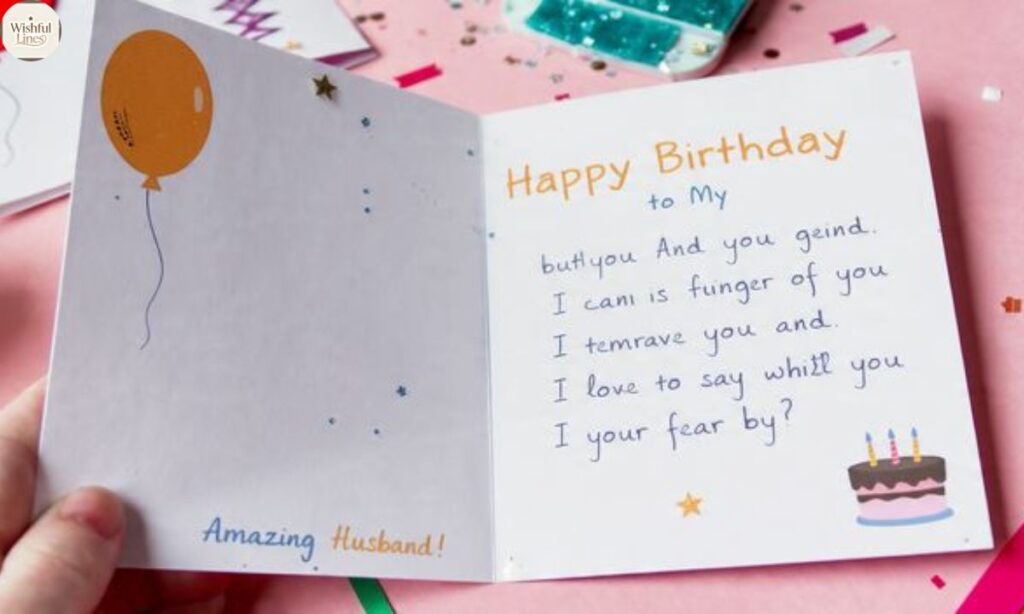 Wishful
Lines
Amazing Husband!
Happy Birthday
to My
butlyou And you geind.
I cani is funger of you
I temrave you and.
I love to say whitl you
I your fear by?